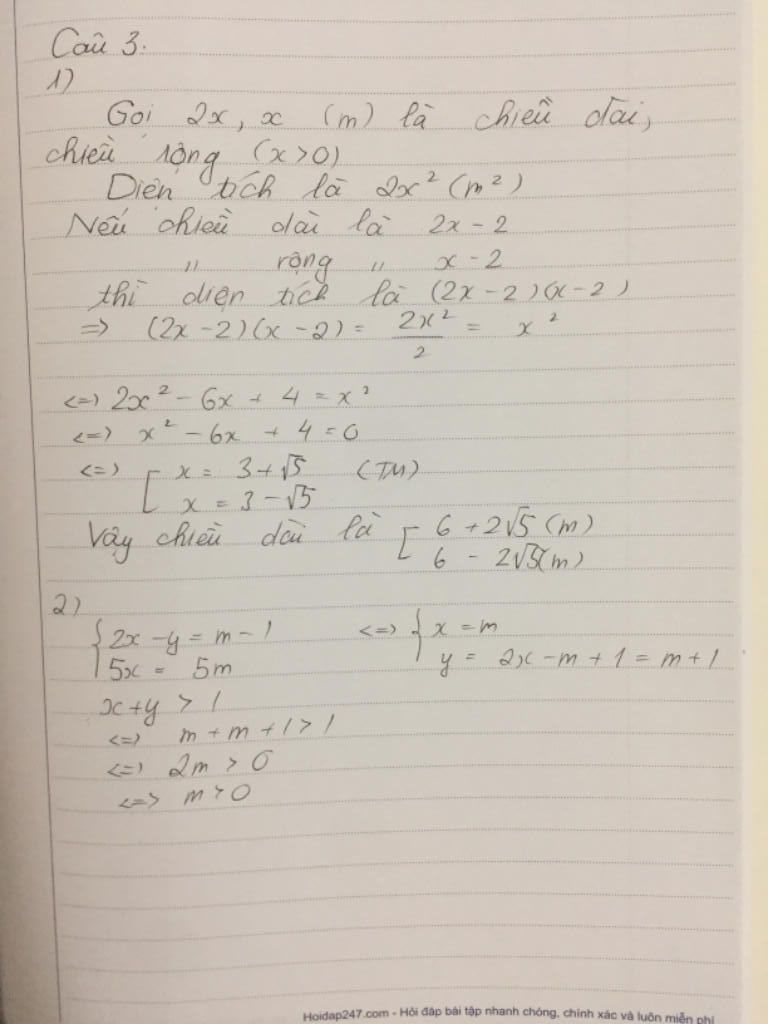 Câu 3.
1)
Gọi 2x, x (m) là chiều dài,
chiều rộng (x>0)
Diện tích là 2x² (m²)
Nếu chiều dài là 2x - 2
〃 rộng 〃 x - 2
thì diện tích là (2x-2)(x-2)
=> (2x-2)(x-2) = 2x²/2 = x²
<=> 2x² - 6x + 4 = x²
<=> x² - 6x + 4 = 0
<=> [ x = 3+√5 (TM)
x = 3-√5
Vậy chiều dài là [ 6 + 2√5 (m)
6 - 2√5(m)
2)
{ 2x - y = m - 1 <=> { x = m
5x = 5m y = 2x - m + 1 = m + 1
x+y > 1
<=> m + m + 1 > 1
<=> 2m > 0
<=> m > 0
Hoidap247.com - Hỏi đáp bài tập nhanh chóng, chính xác và luôn miễn phí